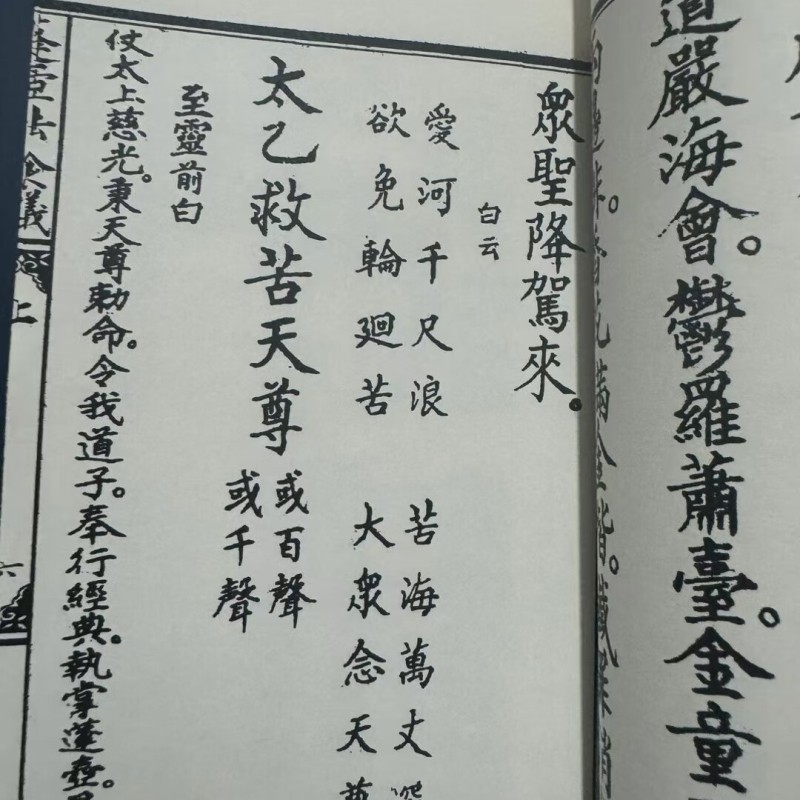 道嚴海會。鬱羅蕭臺。金童
衆聖降駕來。
白云
愛河千尺浪 苦海萬丈深
欲免輪廻苦 大衆念天尊
太乙救苦天尊 或百聲
或千聲
至靈前白
仗太上慈光。秉天尊勅命。令我道子。奉行經典。執掌蓬壺。
上
六